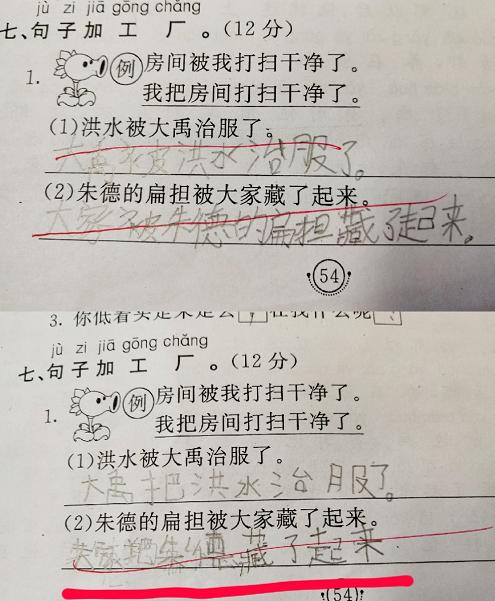 jù zi jiā gōng chǎng
七、句子加工厂。(12分)
1. 例 房间被我打扫干净了。
我把房间打扫干净了。
(1)洪水被大禹治服了。
大禹被洪水治服了。
(2)朱德的扁担被大家藏了起来。
大家被朱德的扁担藏了起来。
54
3. 你低着头走来走去
在找什么呢
jù zi jiā gōng chǎng
七、句子加工厂。(12分)
1. 例 房间被我打扫干净了。
我把房间打扫干净了。
(1)洪水被大禹治服了。
大禹把洪水治服了。
(2)朱德的扁担被大家藏了起来。
大家把朱德藏了起来
(54)